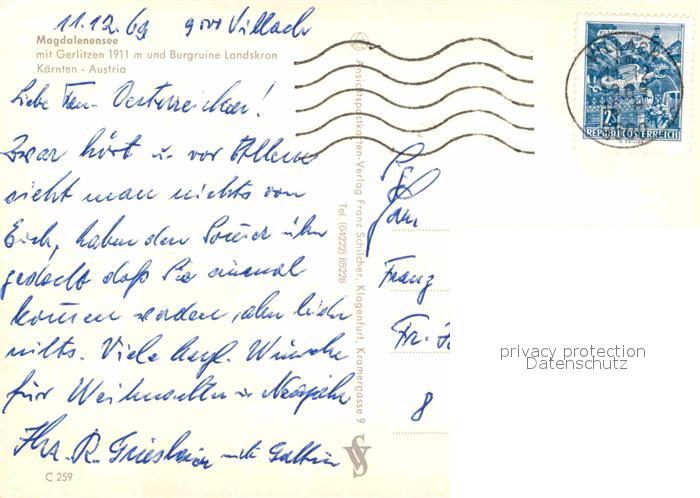 11.12.69 9500 Villach
Magdalenensee
mit Gerlitzen 1911 m und Burgruine Landskron
Kärnten - Austria
Liebe Fam. Oesterreicher!
Zwar hört u. vor Allem
sieht man nichts von
Euch, haben den Sommer über
gedacht daß Sie einmal
kommen werden, aber leider
nichts. Viele Wünsche
für Weihnachten u. Neujahr
Ihr R. mit Gattin
C 259
Ansichtspostkarten-Verlag Franz Schilcher, Klagenfurt, Kramergasse 9
Tel. (04222) 85228
KLAGENFURT
2S
REPUBLIK ÖSTERREICH
Fam
Franz
Fr.
8
privacy protection
Datenschutz